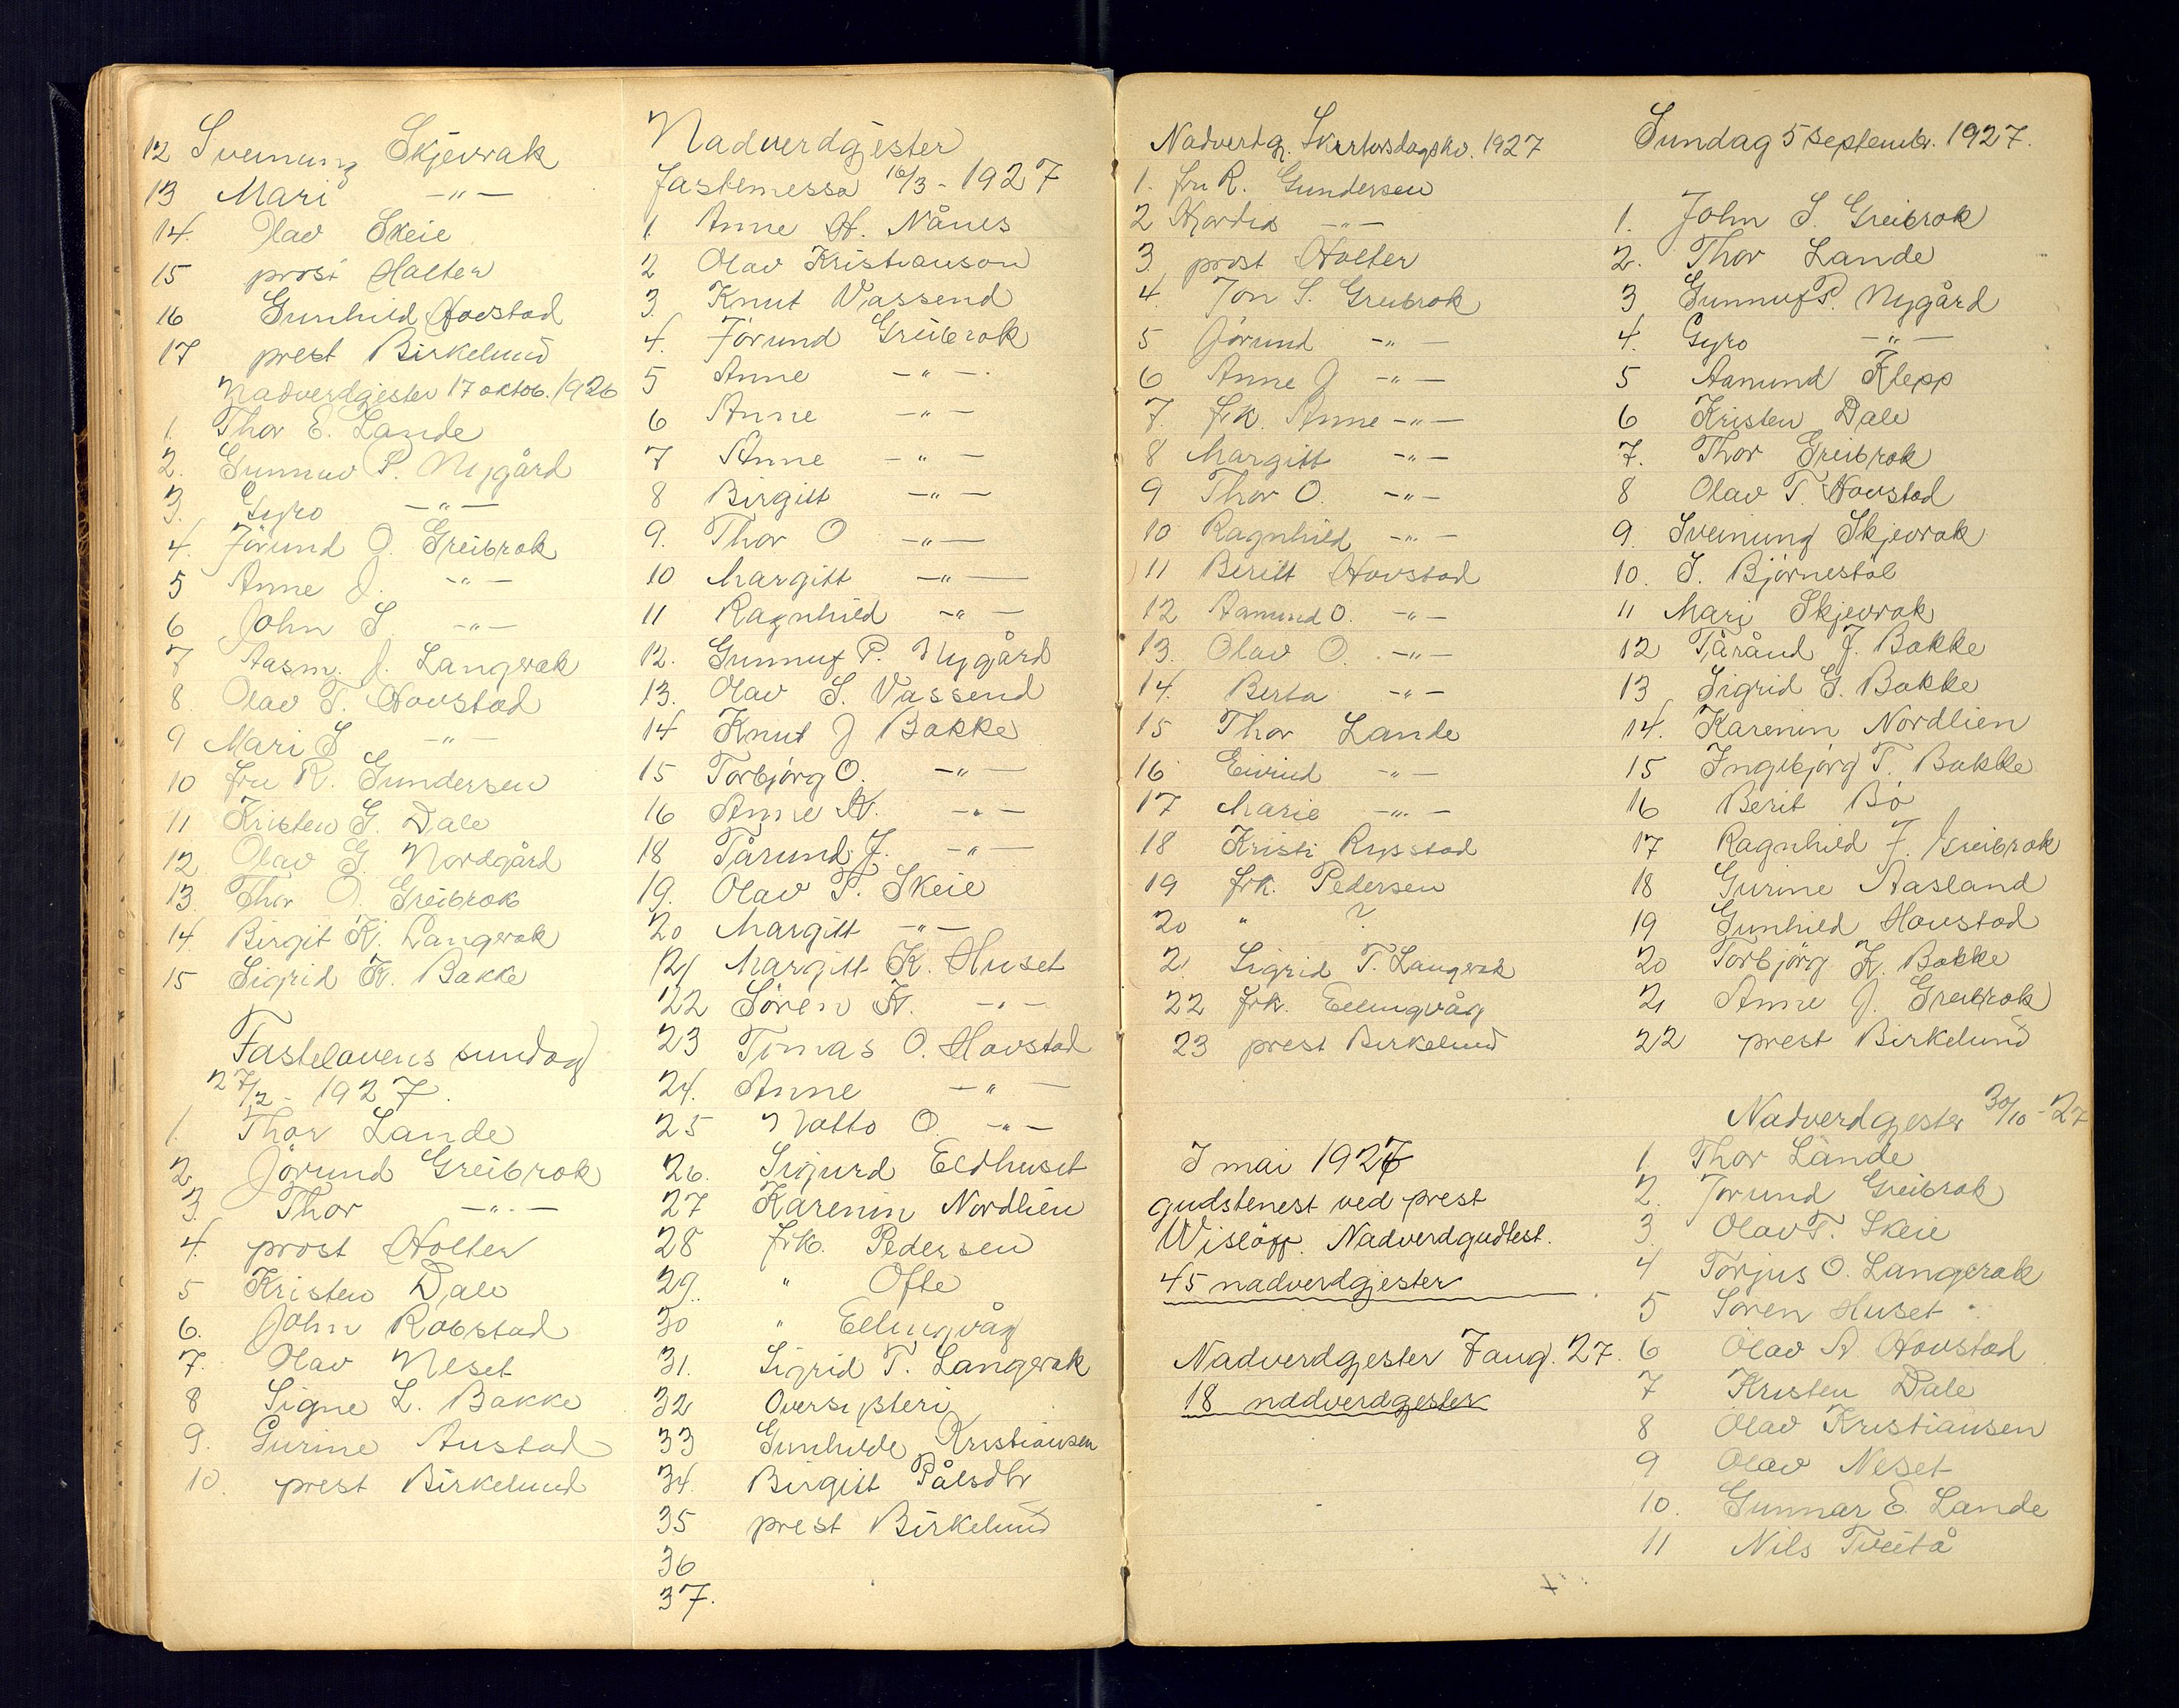 12 Sveinung Skjevrak
13 Mari -"-
14. Olav Skeie
15 prost Holter
16 Gunhild Hovstad
17 prest Birkelund
Nadverdgjester 17 oktob. 1926
1. Thor E. Lande
2. Gunnuv P. Nygård
3. Gyro -"-
4. Jörund O. Greibrok
5 Anne J. -"-
6 John S. -"-
7 Aasm. J. Langerak
8. Olav T. Hovstad
9 Mari S -"-
10 fru R. Gundersen
11 Kristen G. Dale
12 Olav G. Nordgård
13. Thor O. Greibrok
14. Birgit K. Langerak
15 Sigrid K. Bakke
Fastelavens sundag
27/2 - 1927.
1. Thor Lande
2. Jörund Greibrok
3. Thor -"-
4. prost Holter
5 Kristen Dale
6. John Robstad
7. Olav Neset
8 Signe L. Bakke
9. Gurine Austad
10. prest Birkelund
Nadverdgjester
fastemessa 16/3 - 1927
1. Anne H. Nånes
2 Olav Kristianson
3. Knut Vassend
4. Jörund Greibrok
5 Anne -"-
6 Anne -"-
7 Anne -"-
8 Birgitt -"-
9. Thor O -"-
10 Margitt -"-
11 Ragnhild -"-
12. Gunnuf P. Nygård
13. Olav S. Vassend
14 Knut J Bakke
15 Torbjörg O. -"-
16 Anne K. -"-
18 Tårund J. -"-
19. Olav T. Skeie
20 Margitt -"-
21 Margitt K. Huset
22 Sören K. -"-
23 Tomas O. Hovstad
24. Anne -"-
25 O. -"-
26. Sigurd Eldhuset
27 Karenin Nordlien
28 frk. Pedersen
29. " Ofte
30 " Ellingvåg
31. Sigrid T. Langerak
32
33 Gunhilde Kristiansen
34. Birgitt Pålsdtr
35 prest Birkelund
36
37.
Nadverdg. Skirtorsdagskv. 1927
1. fru R. Gundersen
2 Hjordis -"-
3. prost Holter
4. Jon S. Greibrok
5 Jörund -"-
6 Anne J -"-
7. frk. Anne -"-
8 Margitt -"-
9 Thor O. -"-
10 Ragnhild -"-
11 Beritt Hovstad
12 Aamund O. -"-
13. Olav O. -"-
14. Berta -"-
15 Thor Lande
16 Eivind -"-
17 Marie -"-
18 Kristi Rysstad
19 frk. Pedersen
20 " ?
21 Sigrid T. Langerak
22 frk. Ellingvåg
23 prest Birkelund
I mai 1927
gudstenest ved prest
Wislöff. Nadverdgudtest.
45 nadverdgjester
Nadverdgjester 7 aug. 27.
18 nadverdgjester
Sundag 5 septembr. 1927.
1. John S. Greibrok
2. Thor Lande
3 Gunnuf P. Nygård
4. Gyro -"-
5 Aanund Klepp
6 Kristen Dale
7. Thor Greibrok
8 Olav T. Hovstad
9. Sveinung Skjevrak
10. S. Björnestöl
11 Mari Skjevrak
12 Tårånd J. Bakke
13 Sigrid G. Bakke
14. Karenin Nordlien
15 Ingebjörg T. Bakke
16 Berit Bö
17 Ragnhild J. Greibrok
18 Gurine Aasland
19 Gunhild Hovstad
20 Torbjörg K. Bakke
21 Anne J. Greibrok
22 prest Birkelund
Nadverdgjester 30/10 - 27
1. Thor Lande
2. Jørund Greibrok
3. Olav T. Skeie
4 Torjus O. Langerak
5 Sören Huset
6 Olav A. Hovstad
7 Kristen Dale
8 Olav Kristiansen
9 Olav Neset
10. Gunnar E. Lande
11 Nils Tveitå